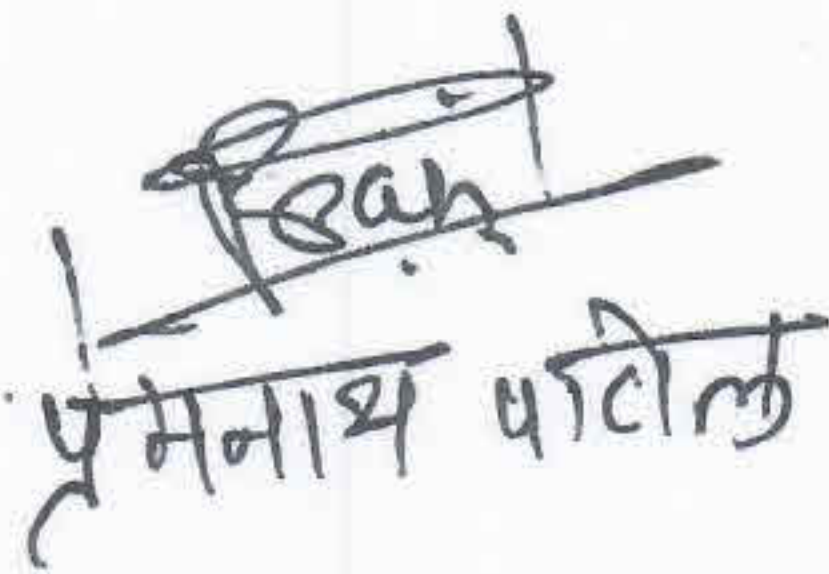 प्रमनाथ पाटील